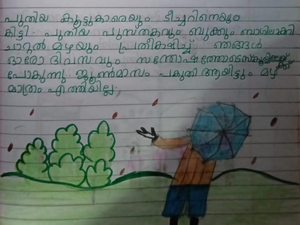 പുതിയ കൂട്ടുകാരെയും ടീച്ചറിനെയും
കിട്ടി. പുതിയ പുസ്തകവും ബുക്കും ബാഗിലാക്കി
ചാറ്റൽ മഴയും പ്രതീക്ഷിച്ച് ഞങ്ങൾ
ഓരോ ദിവസവും സന്തോഷത്തോടെ
പോകുന്നു. ജൂൺമാസം പകുതി ആയിട്ടും മഴ
മാത്രം എത്തിയില്ല.